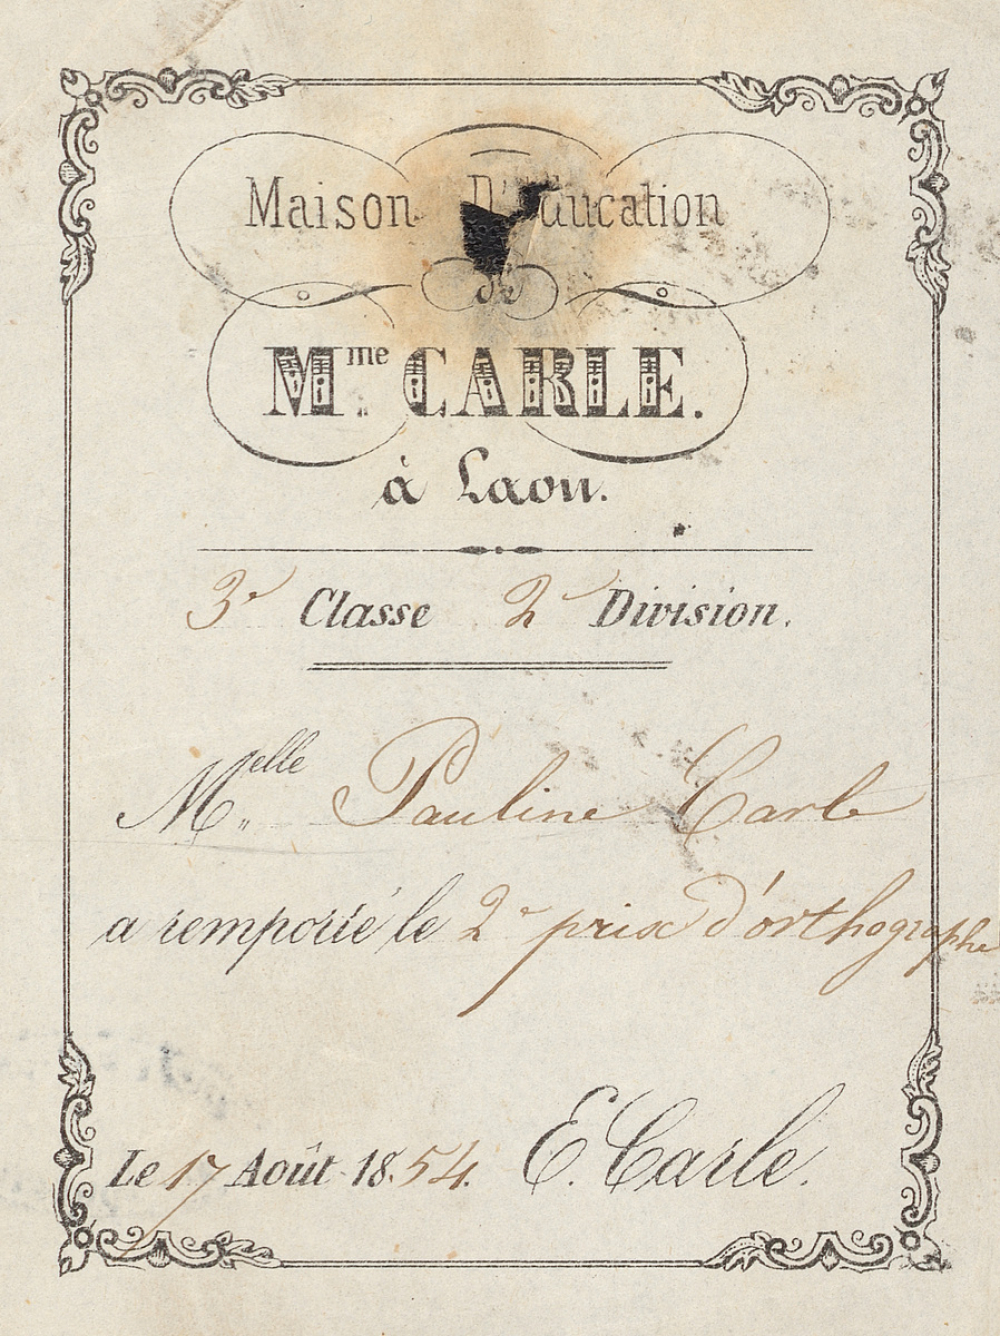 Maison D'Education
de
Mme CARLE.
à Laon.
3e Classe 2e Division.
Melle Pauline Carle
a remporté le 2e prix d'orthographe
Le 17 Août 1854. E. Carle.